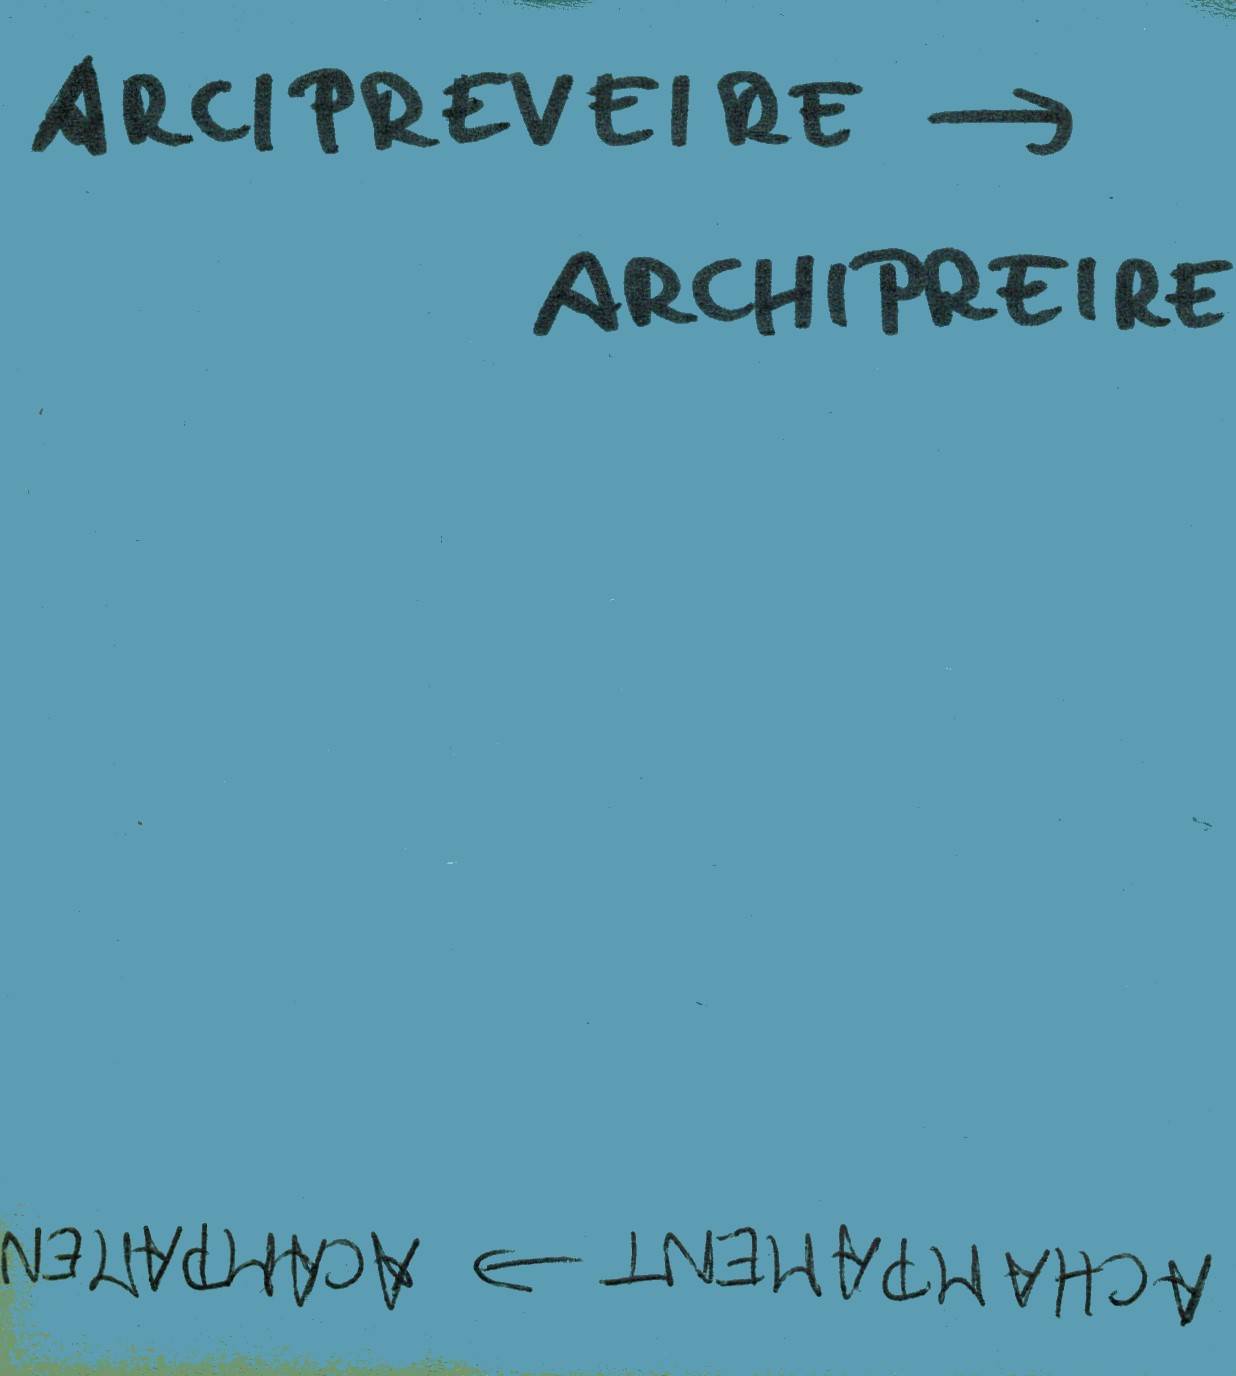 ARCIPREVEIRE →
ARCHIPREIRE
ACHAMPAMENT → ACAMPAMEN